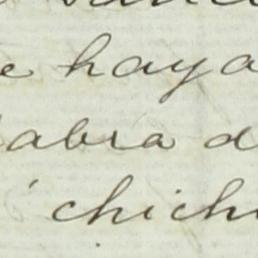 e haya
labra d
chich